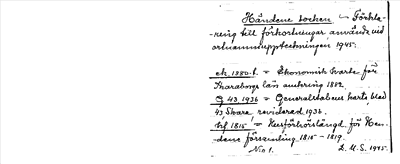 Händene socken. Förkla-
ring till förkortningar, använda vid
ortnamnsuppteckningen 1945.
ek. 1880-t. = Ekonomisk karta för
Skaraborgs län omkring 1882.
G 43 1936 = Generalstabens karta, blad
43, Skara reviderad 1936.
hfl 1815 = Husförhörslängd för Hän-
dene församling 1815 - 1819.
N:o 1. L. U. S. 1945.